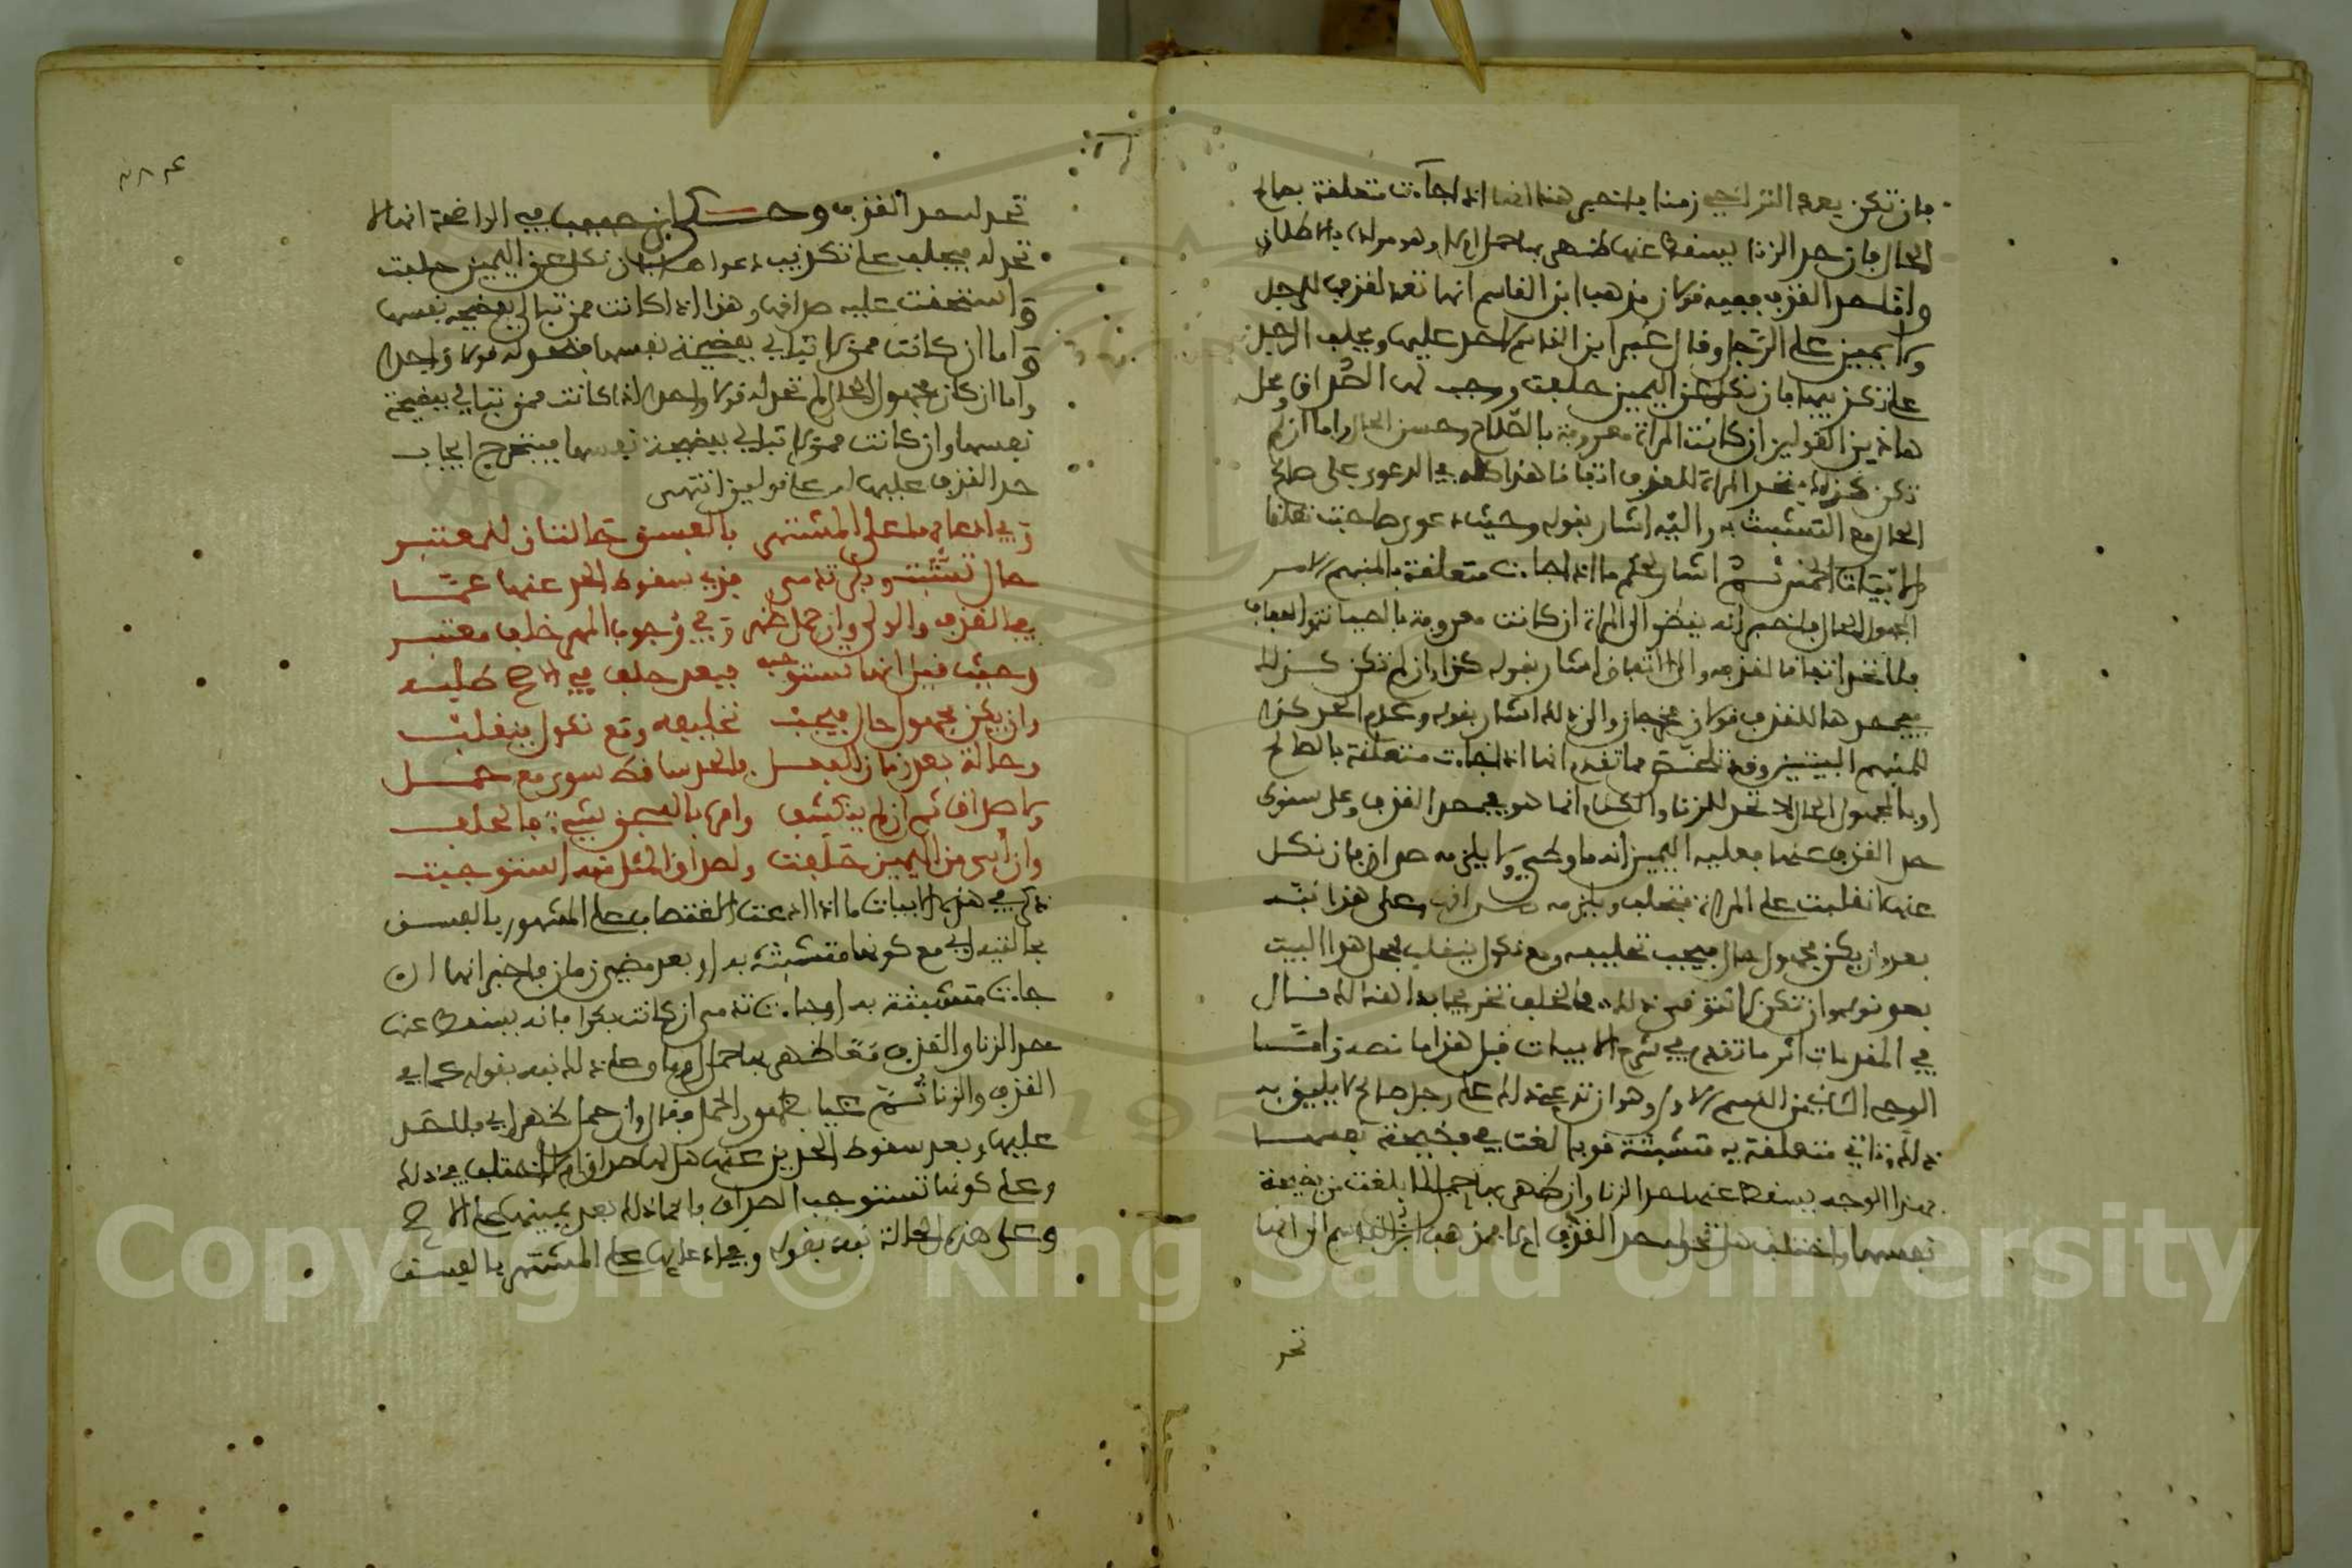 فان تكن بعد التراخي زمنا فاخبر هنا انها اذا جاءت متعلقة بصالح
الحال فان حد الزنا يسقط عنها ظهر بها حمل ام لا وهو مراده بالاطلاق
واما حد القذف ففيه قولان مذهب ابن القاسم انها تحد لقذف الرجل
ولا يمين على الرجل وقال غير ابن القاسم لا حد عليها ويحلف الرجل
على تكذيبها فان نكل عن اليمين حلفت ووجب لها الصداق ومحل
هاذين القولين ان كانت المراة معروفة بالصلاح وحسن الحال واما ان لم
تكن كذلك فتحد المراة للقذف اتفاقا هذا كله في الدعوى على صالح
الحال مع التشبث به واليه اشار بقوله وحيث دعوى صاحبت تعلقا
الابيات الخمس ثم اشار لحكم ما اذا جاءت متعلقة بالمتهم لا
المجهول الحال فاخبر انه ينظر الى المراة ان كانت معروفة بالصيانة والعفاف
فلا تحد اتفاقا لقذفه والى الاتفاق اشار بقوله كذا وان لم تكن كذلك
ففي حدها للقذف قولان مخرجان والى ذلك اشار بقوله وعدم الحد كذا
للمتهم البيتين وقد تلخص مما تقدم انها اذا جاءت متعلقة بالصالح
او بالمجهول الحال لا تحد للزنا والكلام انما هو في حد القذف وعلى سقوط
حد القذف عنها فعليه اليمين انه ما وطئ ولا يلزمه صداق فان نكل
عنها انقلبت على المراة فتحلف ويلزمه صداق وعلى هذا نبه
بعد وان يكن مجهول حال فيجب تحليفه ومع نكول ينقلب محل هذا البيت
بعد قوله وان تكن لا تتوقى ذلك فالخلف تخريجا بدا هنالك قال
في المقدمات اثر ما تقدم في شرح الابيات قبل هذا ما نصه واما
الوجه الثاني من القسم الاول وهو ان تدعي ذلك على رجل صالح لا يليق به
ذلك وتاتي متعلقة به متشبثة قد بالغت في فضيحة نفسها
فهذا الوجه يسقط عنها حد الزنا وان ظهر بها حمل لما بلغت من فضيحة
نفسها واختلف هل تحد له حد القذف ام لا فمذهب ابن القاسم الى انها
تحد
تحد له حد القذف وحكى ابن حبيب في الواضحة انها لا
تحد له ويحلف على تكذيب دعواها فان نكل عن اليمين حلفت
واستحقت عليه صداقها وهذا اذا كانت ممن تبالي بفضيحة نفسها
واما ان كانت ممن لا تبالي بفضيحة نفسها فتحد له قولا واحدا
واما ان كان مجهول الحال لم تحد له قولا واحدا اذا كانت ممن تبالي بفضيحة
نفسها وان كانت ممن لا تبالي بفضيحة نفسها فيتخرج ايجاب
حد القذف عليها له على قولين انتهى
وفي ادعائها على المشتهر بالفسق حالتان للمعتبر
حال تشبث وبكر تدمى فذي سقوط الحد عنها عما
في القذف والزنى وان حمل ظهر وفي وجوب المهر خلف معتبر
وحيث قيل انها تستوجبه فبعد حلف في الاصح تطلبه
وان يكن مجهول حال فيجب تحليفه ومع نكول ينقلب
وحالة بعد زمان الفعل فالحد ساقط سوى مع حمل
ولا صداق ثم ان لم ينكشف وامره بالسجن شيء فالحلف
وان ابى من اليمين حلفت ولصداق المثل منه استوجبت
ذكر في هذه الابيات ما اذا ادعت الاغتصاب على المشهور بالفسق
حالتيه اي مع كونها متشبثة به او بعد مضي زمان فاخبر انها ان
جاءت متشبثة به او جاءت تدمى ان كانت بكرا فانه يسقط عنها
حد الزنا والقذف معا ظهر بها حمل ام لا وعلى ذلك نبه بقوله عما في
القذف والزنا ثم غيا بظهور الحمل فقال وان حمل ظهر اي فلا حد
عليها وبعد سقوط الحدين عنها هل لها صداق ام لا اختلف في ذلك
وعلى كونها تستوجب الصداق فانما ذلك بعد يمينها على الاصح
وعلى هذه الحالة نبه بقوله وفي ادعائها على المشتهر بالفسق